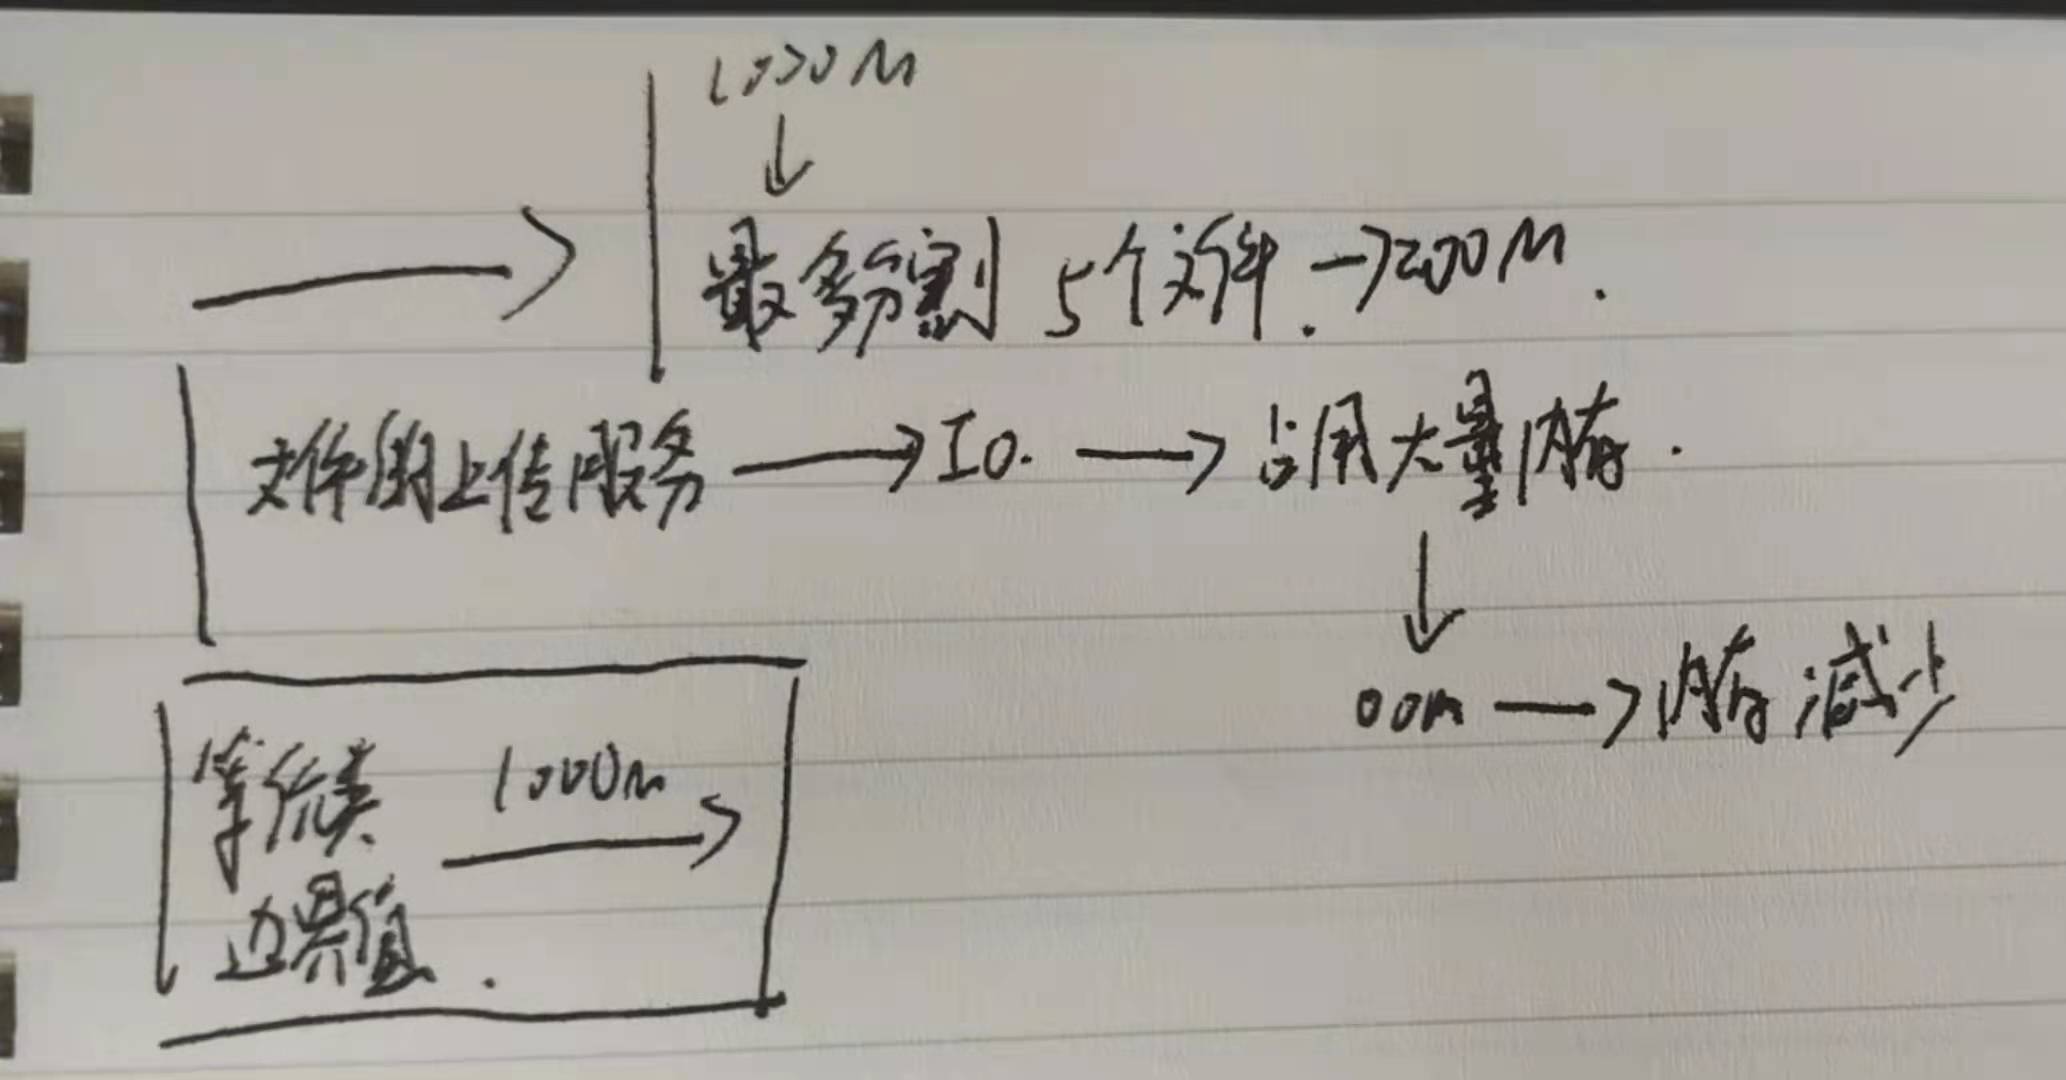 1000M
↓
最多分割 5个文件. → 200M.
文件上传服务 → IO. → 占用大量内存.
↓
OOM → 内存减少
等价类 1000m →
边界值.